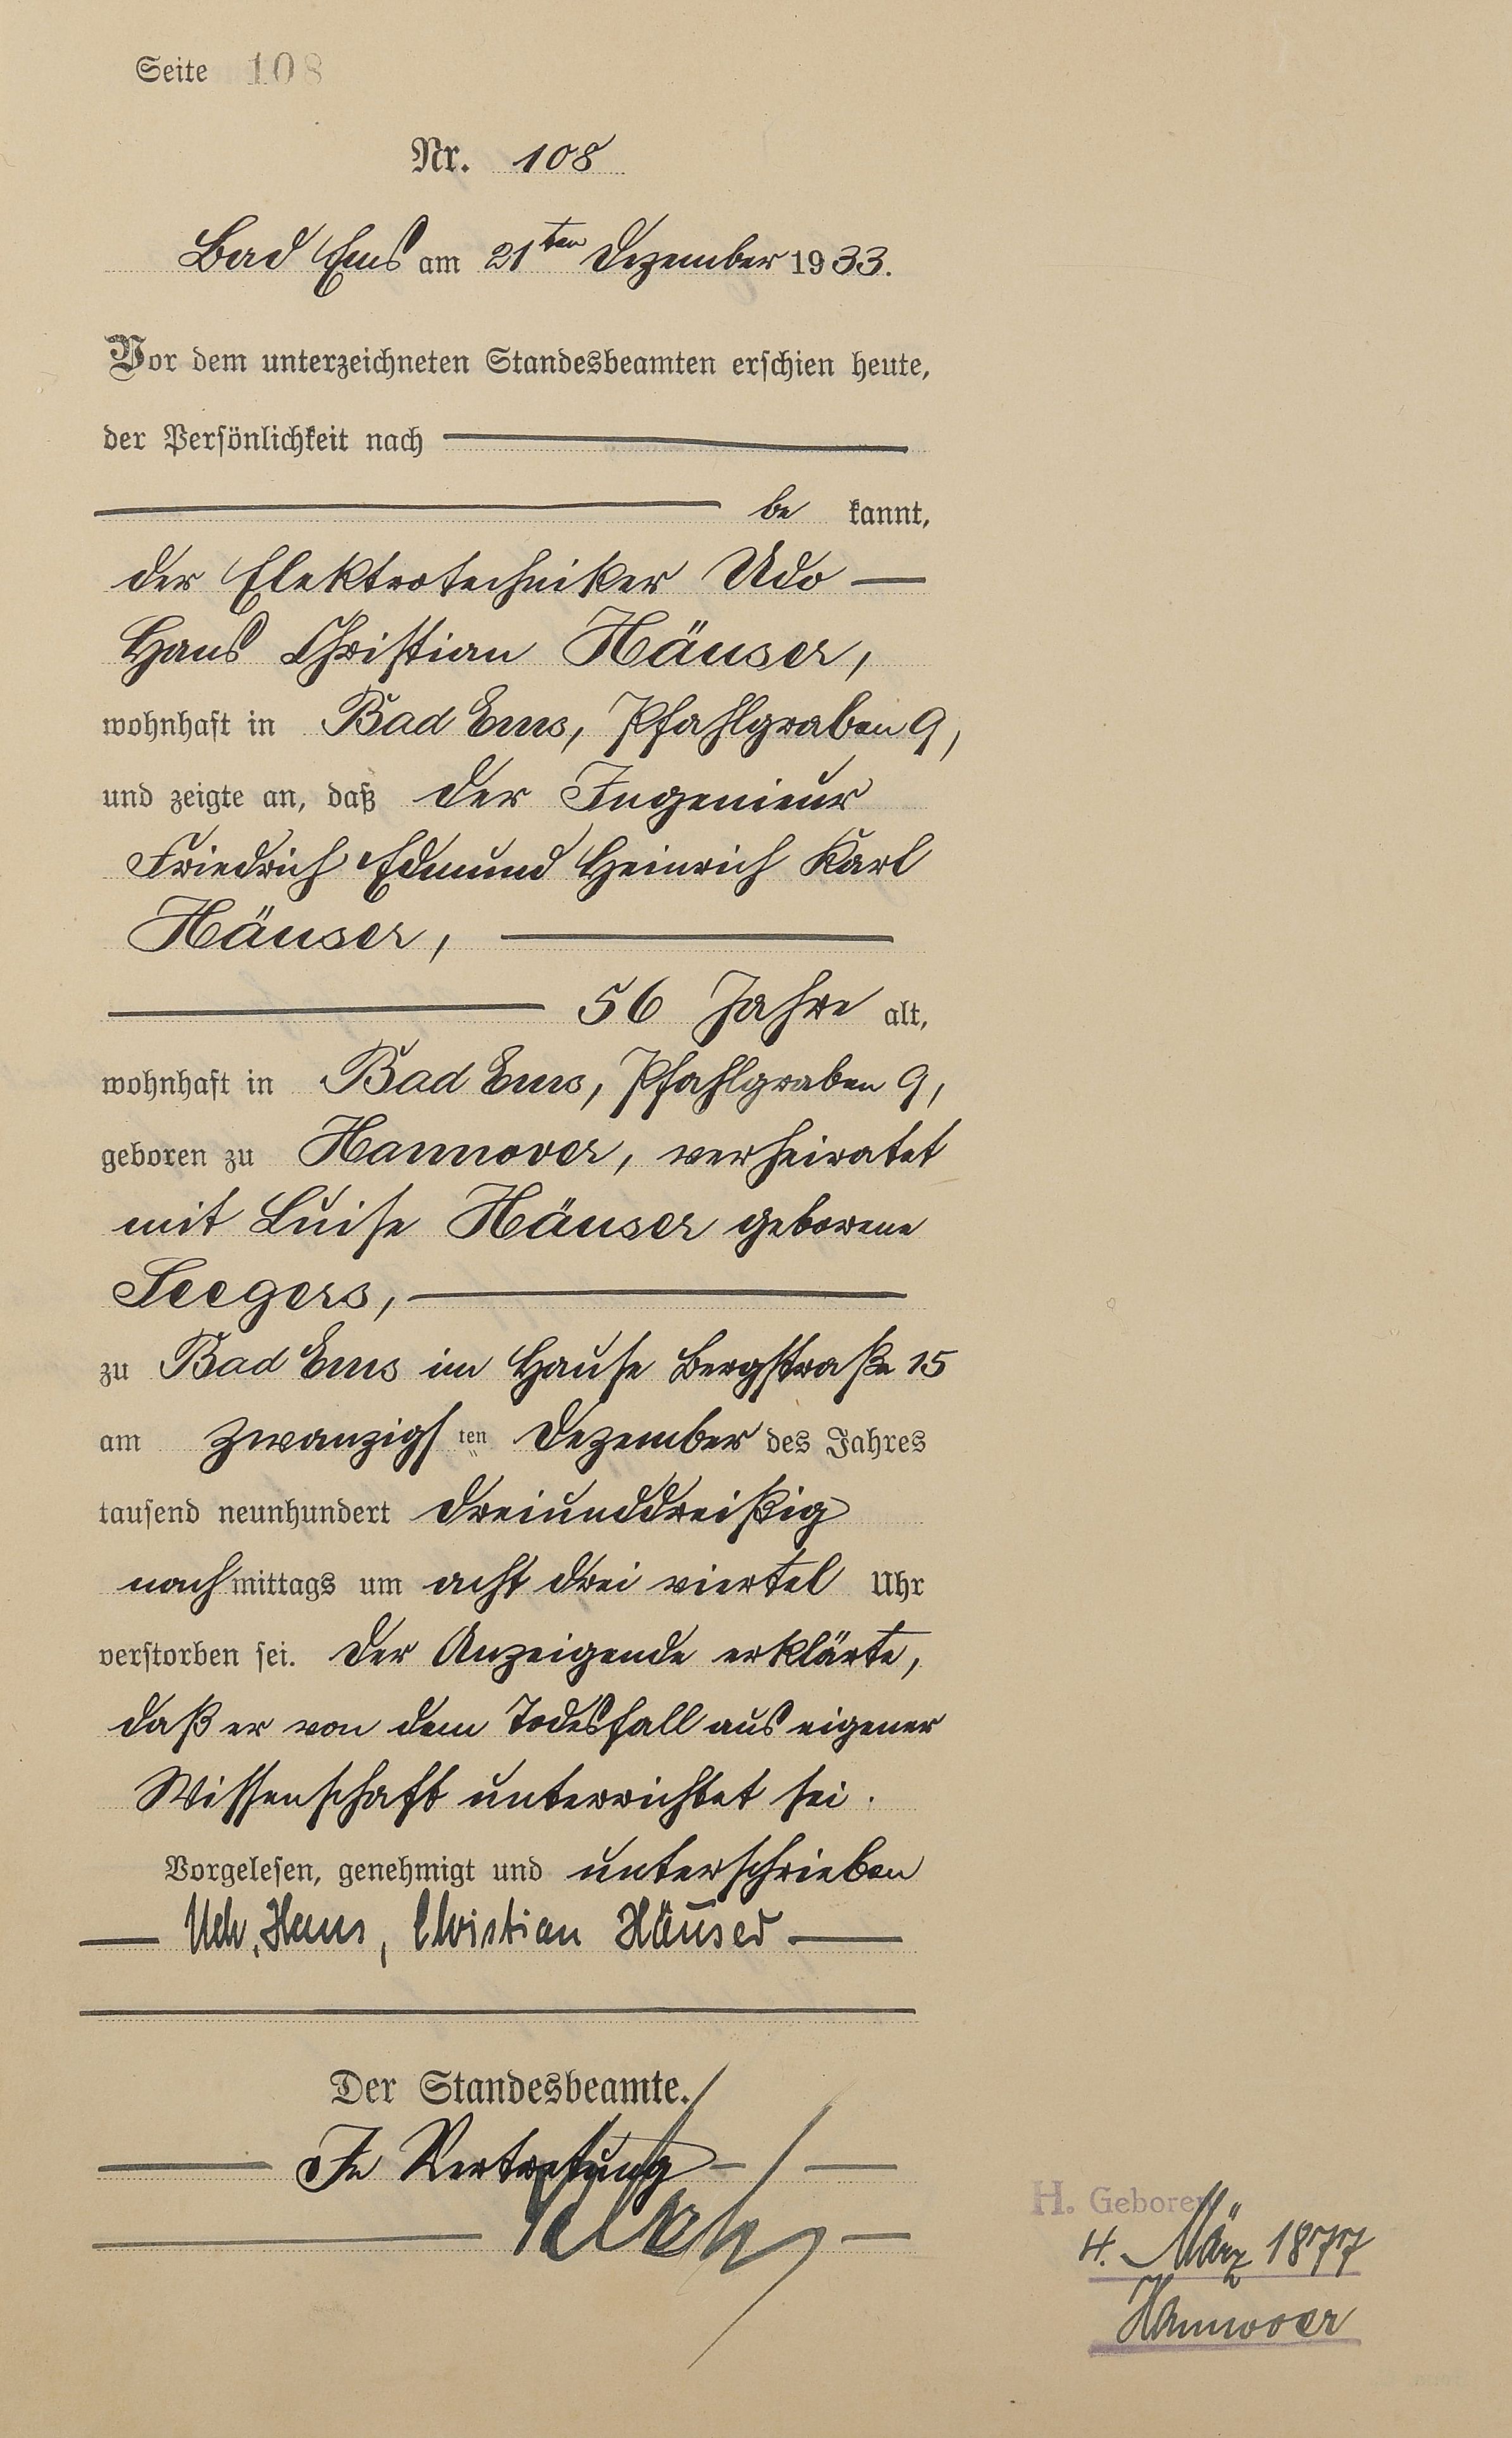 Seite 108
Nr. 108
Bad Ems am 21ten Dezember 1933.
Vor dem unterzeichneten Standesbeamten erschien heute,
der Persönlichkeit nach
be kannt,
der Elektrotechniker Udo
Hans Christian Häuser,
wohnhaft in Bad Ems, Pfahlgraben 9,
und zeigte an, daß der Ingenieur
Friedrich Edmund Heinrich Karl
Häuser,
56 Jahre alt,
wohnhaft in Bad Ems, Pfahlgraben 9,
geboren zu Hannover, verheiratet
mit Luise Häuser geborene
Seegers,
zu Bad Ems im Hause Bergstraße 15
am zwanzigsten Dezember des Jahres
tausend neunhundert dreiunddreißig
nachmittags um acht drei viertel Uhr
verstorben sei. Der Anzeigende erklärte,
daß er von dem Todesfall aus eigener
Wissenschaft unterrichtet sei.
Vorgelesen, genehmigt und unterschrieben
Udo, Hans, Christian Häuser
Der Standesbeamte.
In Vertretung
H. Geboren
4. März 1877
Hannover